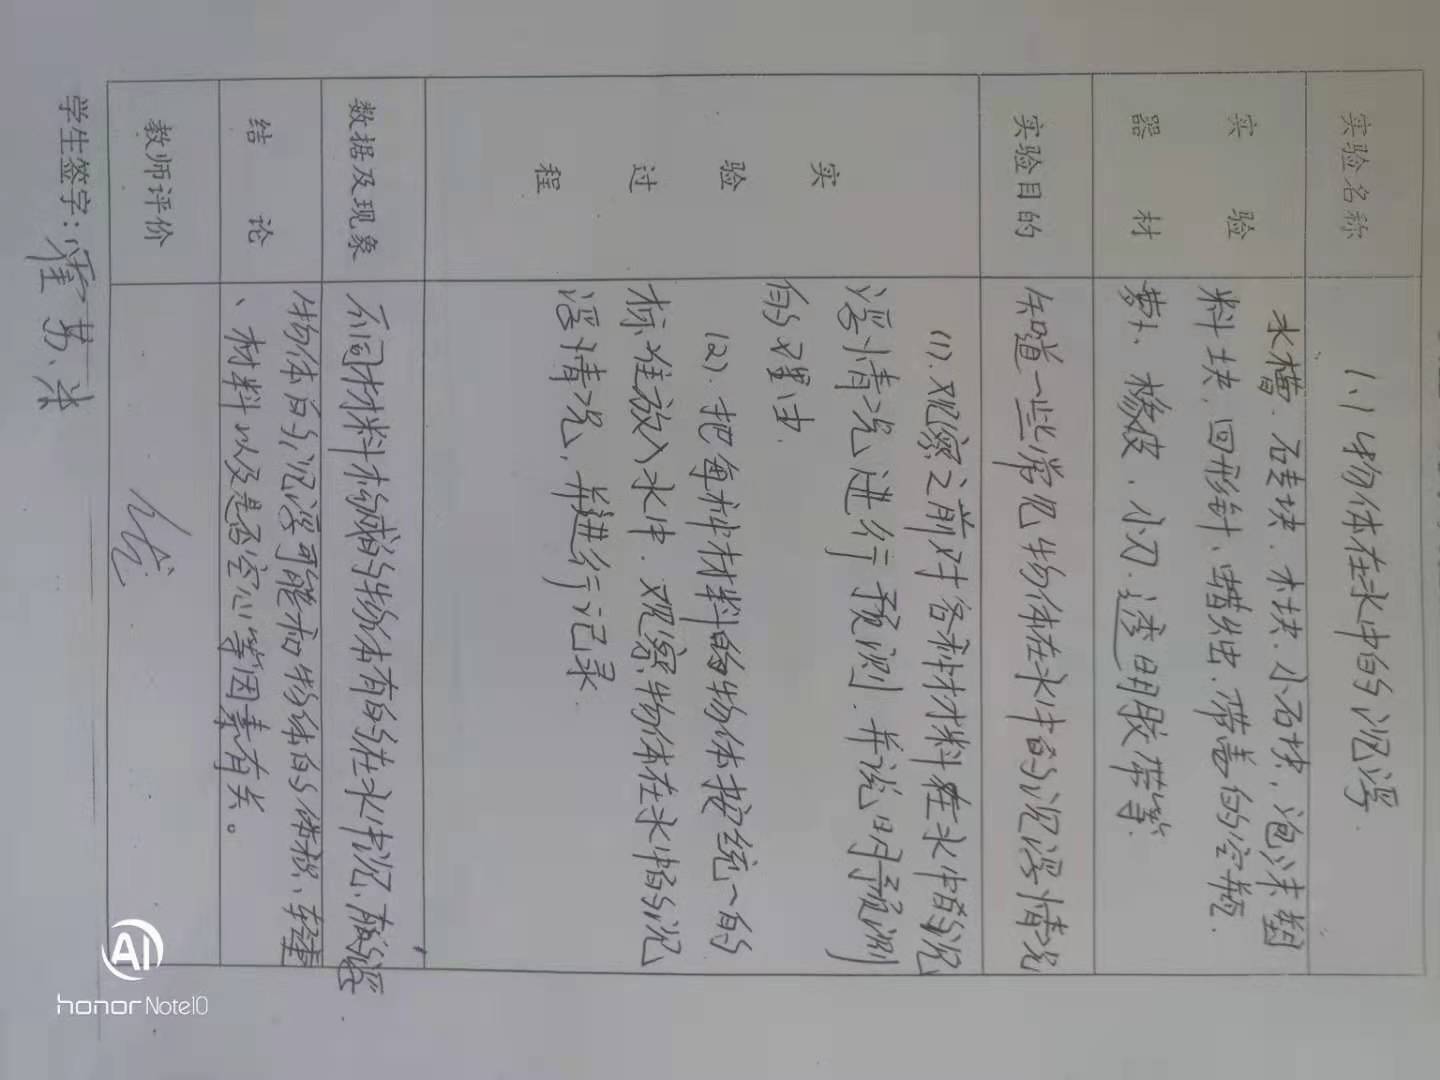 实验名称
1.1 物体在水中的沉浮.
实验
器材
水槽. 砖块. 木块. 小石块, 泡沫塑
料块. 回形针、蜡烛. 带盖的空瓶.
萝卜、橡皮. 小刀. 透明胶带等.
实验目的
知道一些常见物体在水中的沉浮情况
实
验
过
程
(1). 观察之前对各种材料在水中的沉
浮情况进行预测. 并说明预测
的理由.
(2). 把每种材料的物体按统一的
标准放入水中. 观察物体在水中的沉
浮情况, 并进行记录
数据及现象
不同材料构成的物体有的在水中沉、有的浮
结论
物体的沉浮可能和物体的体积、轻重
、材料以及是否空心等因素有关。
教师评价
优
学生签字:
AI
honor Note10